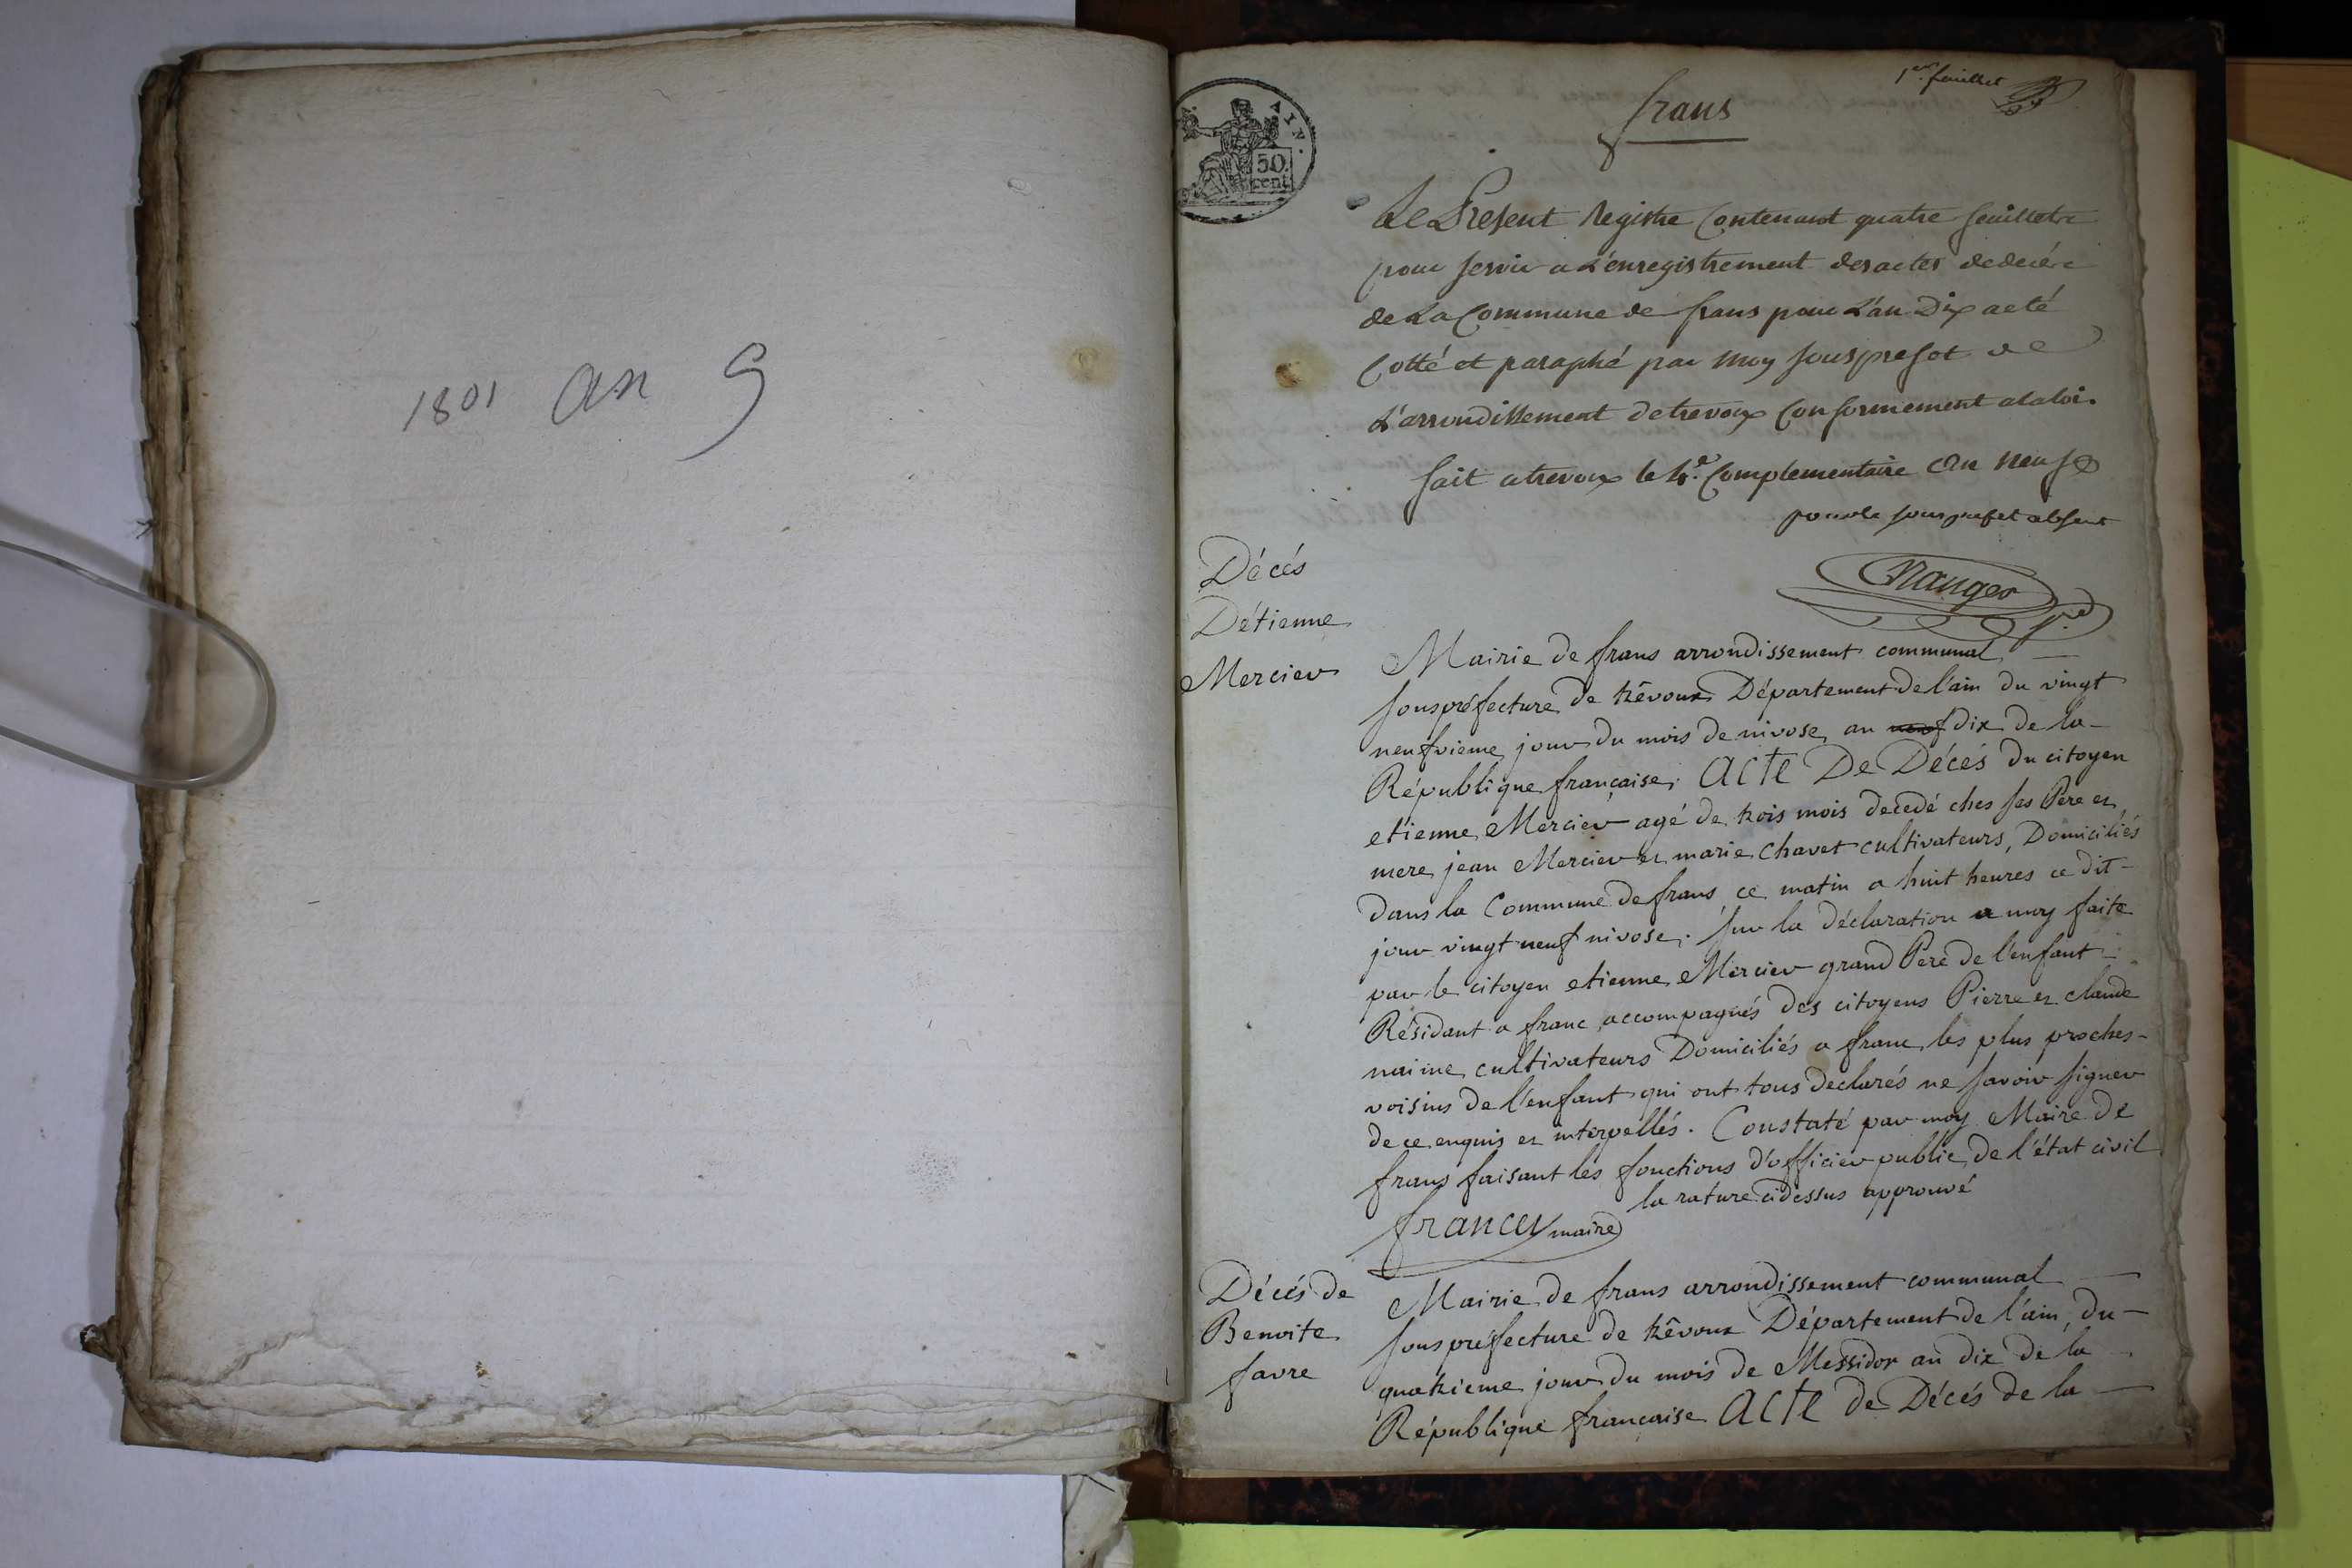 1801 an 9
1er. feuillet
frans
AIN.
50
cent
Le Present Registre Contenant quatre feuillets
pour servir a L'enregistrement des actes de décés
de La Commune de frans pour L'an Dix a eté
Cotté et paraphé par moy sousprefet de
L'arrondissement de trevoux Conformement a la loi.
fait a trevoux le 4e. Complementaire an neuf
pour le sous prefet absent
Décés
Détienne
Mercier
Mairie de frans arrondissement communal
souspréfecture de trêvoux Département de l'ain du vingt
neufvieme jour du mois de nivose an neuf dix de la
République française; Acte De Décés du citoyen
etienne Mercier agé de trois mois decedé ches ses Pere et
mere jean Mercier et marie chavet cultivateurs, Domiciliés
dans la Commune de frans ce matin a huit heures ce dit
jour vingt neuf nivose. Sur la déclaration a moy faite
par le citoyen etienne Mercier grand Pere de l'enfant
Résidant a franc accompagnés des citoyens Pierre et claude
cultivateurs Domiciliés a franc les plus proches
voisins de l'enfant qui ont tous declarés ne savoir signer
de ce enquis et interpellés. Constaté par moy Maire de
frans faisant les fonctions d'officier public de l'état civil
la rature cidessus approuvé
maire
Décés de
Benoite
favre
Mairie de frans arrondissement communal
souspréfecture de trêvoux Département de l'ain, du
quatrieme jour du mois de Messidor an dix de la
République française Acte de Décés de la